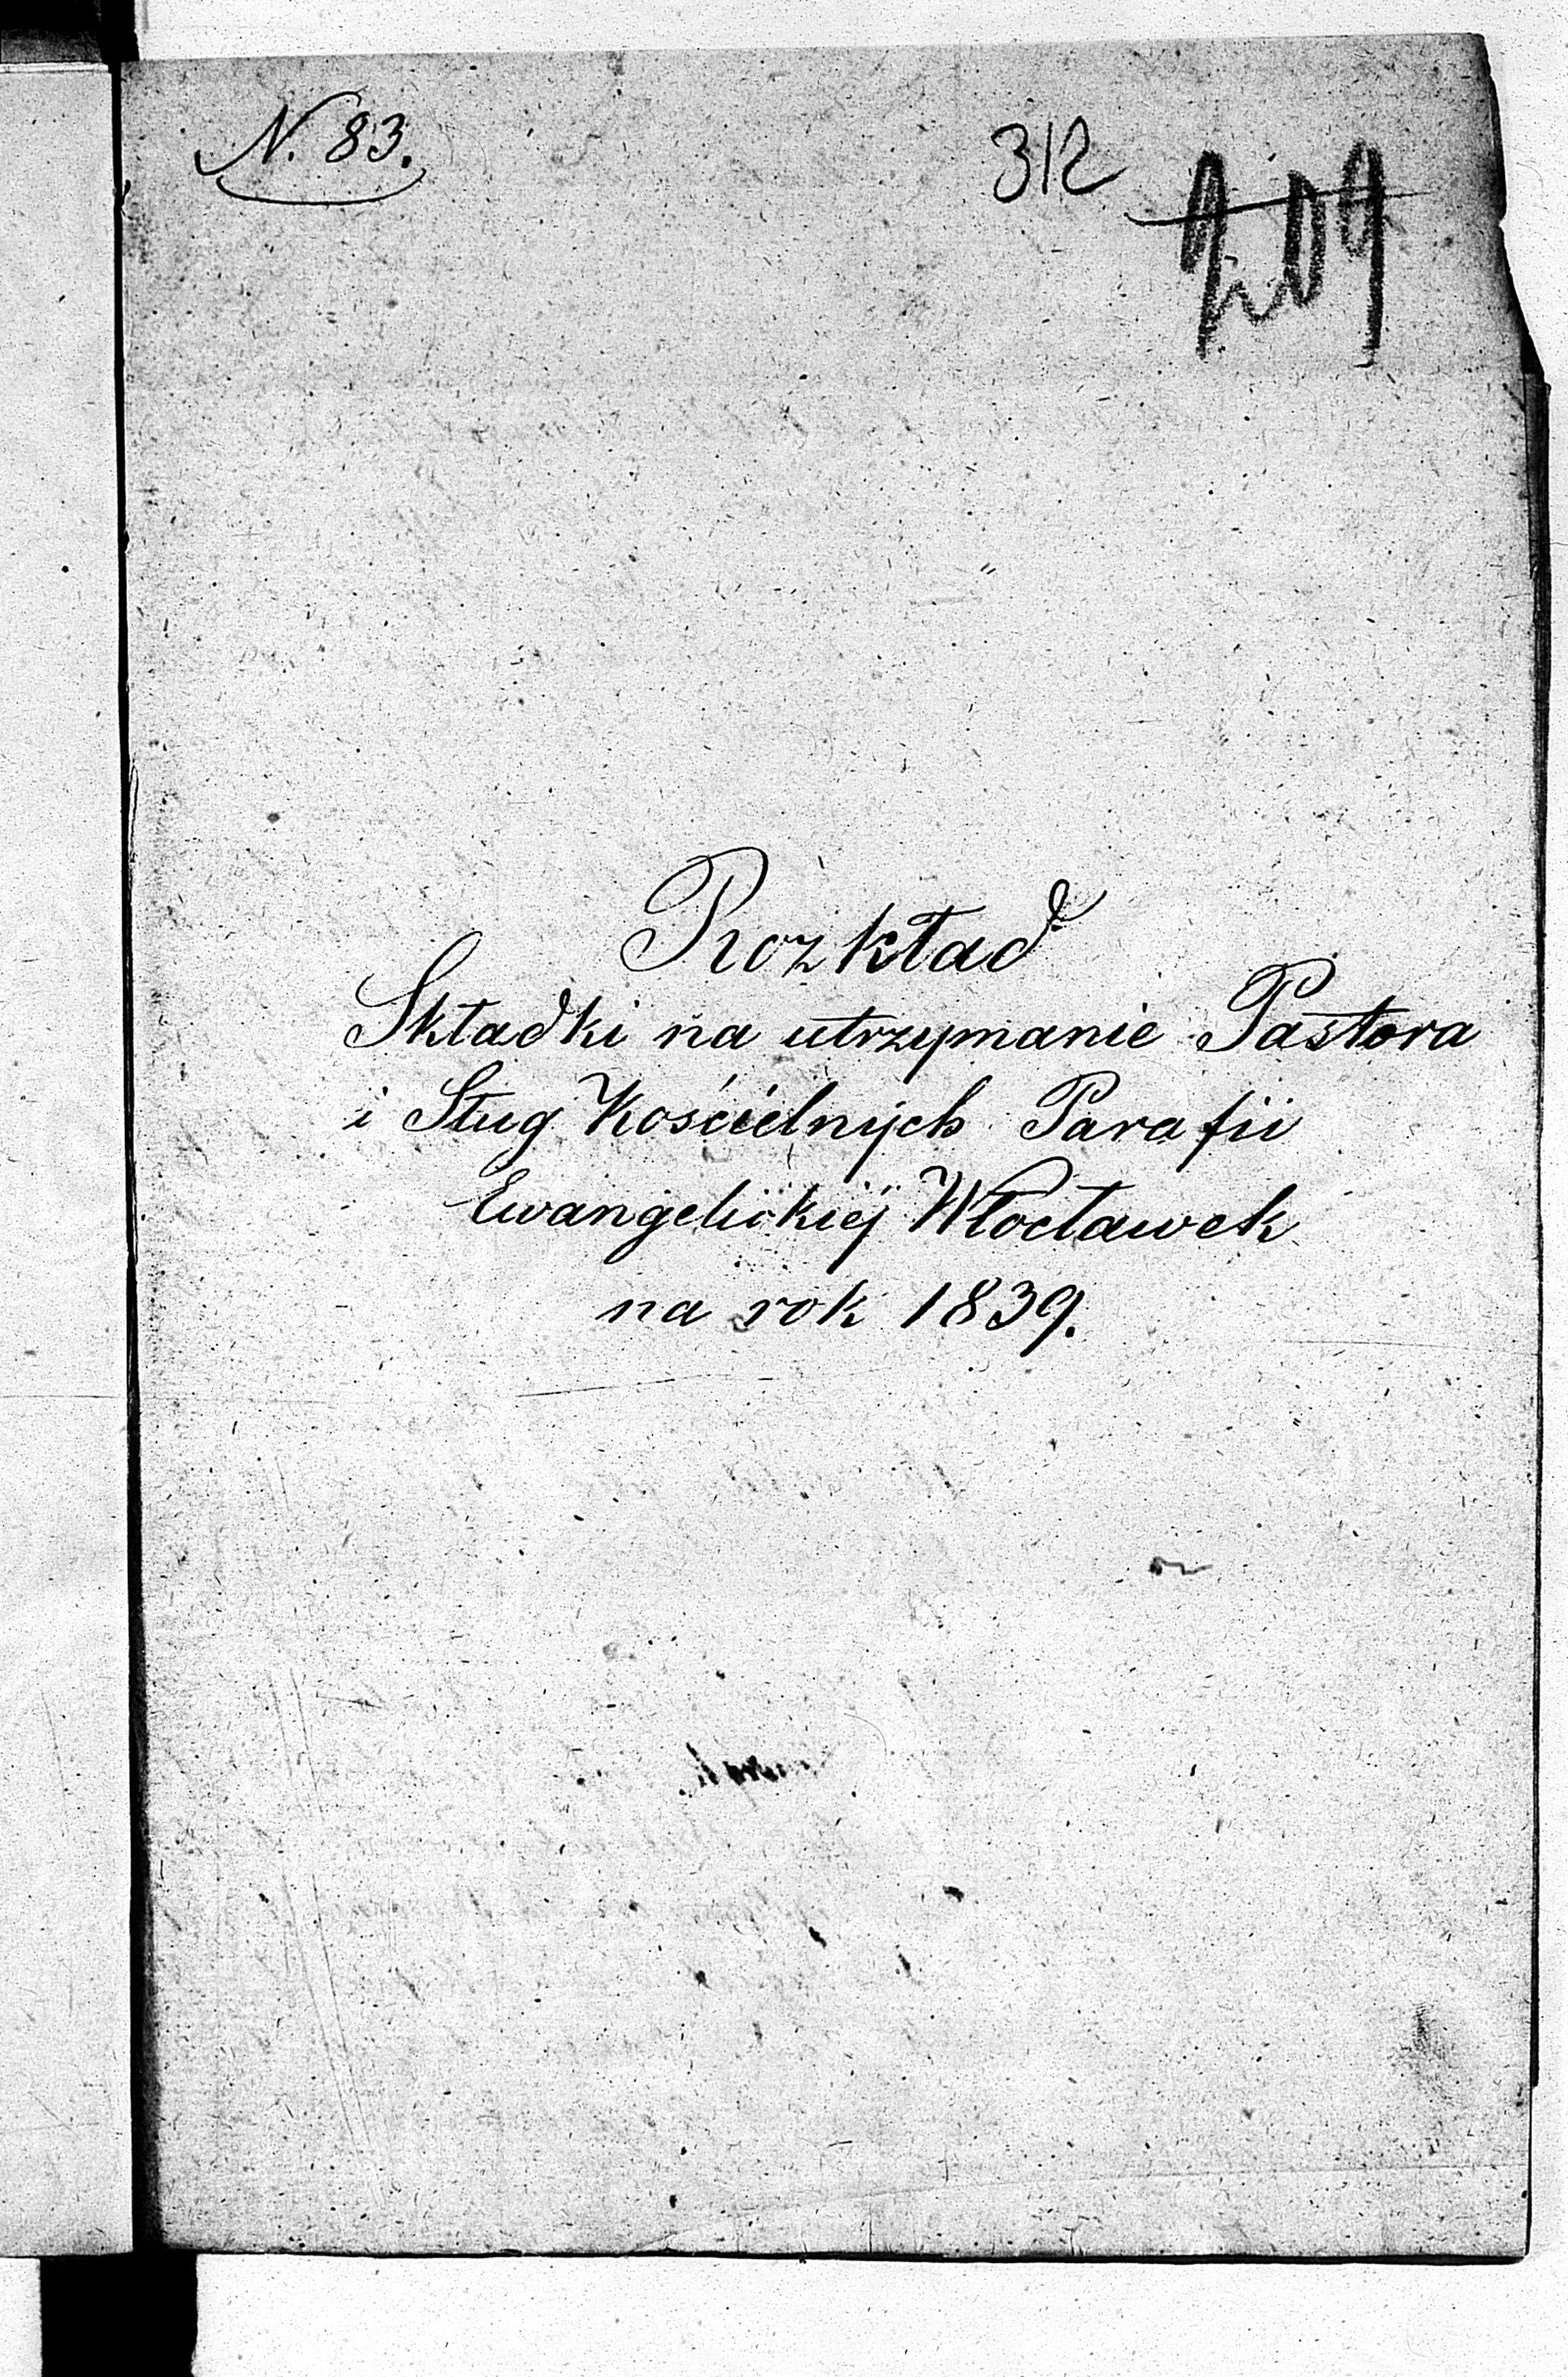 N. 83.
312
209
Rozkład
Składki na utrzymanie Pastora
i Sług Kościelnych Parafii
Ewangelickiéj Włocławek
na rok 1839.